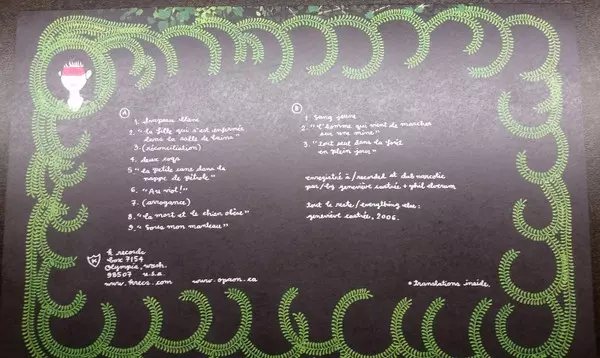 A
1. drapeau blanc
2. "la fille qui s'est enfermée
dans la salle de bains"
3. (réconciliation)
4. deux coqs
5. "la petite cane dans la
nappe de pétrole"
6. "Au viol!"
7. (arrogance)
8. "la mort et le chien obèse"
9. "Sous mon manteau"
K
k records
box 7154
Olympia, wash.
98507 u.s.a.
www.krecs.com
www.opaon.ca
B
1. Sang jeune
2. "l'homme qui vient de marcher
sur une mine"
3. "tout seul dans la forêt
en plein jour"
enregistré à/recorded at dub narcotic
par/by geneviève castrée + phil elverum
tout le reste/everything else:
geneviève castrée, 2006.
*translations inside.